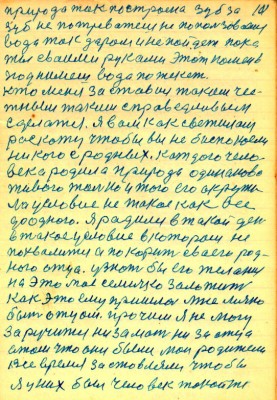 природа так построена зуб за
зуб не потревожем не попользоваешь
вода так даром и не пойдет пока
ты своими руками этот помень
поднимеш вода потекет.
кто меня заставил таким чес-
тным таким справедливым
сделатся. Я вам как светилам
раскажу чтобы вы не беспокоели
никого с родных, каждого чело-
века родила природа одинаково
живого только у того его окружа-
ла условие не такое как все
доодного. Я родился в такой ден
в такое условие в котором не
похвалиш и покорит своего род-
ного отца. узнат бы его желани
на это мое семячко заложит
как этому пришлос мне лично
быт отцом. прочим я не могу
заручится ни за мат ни за отца
отом что они были мои родители
все время заставляли чтобы
я у них был человек такой же